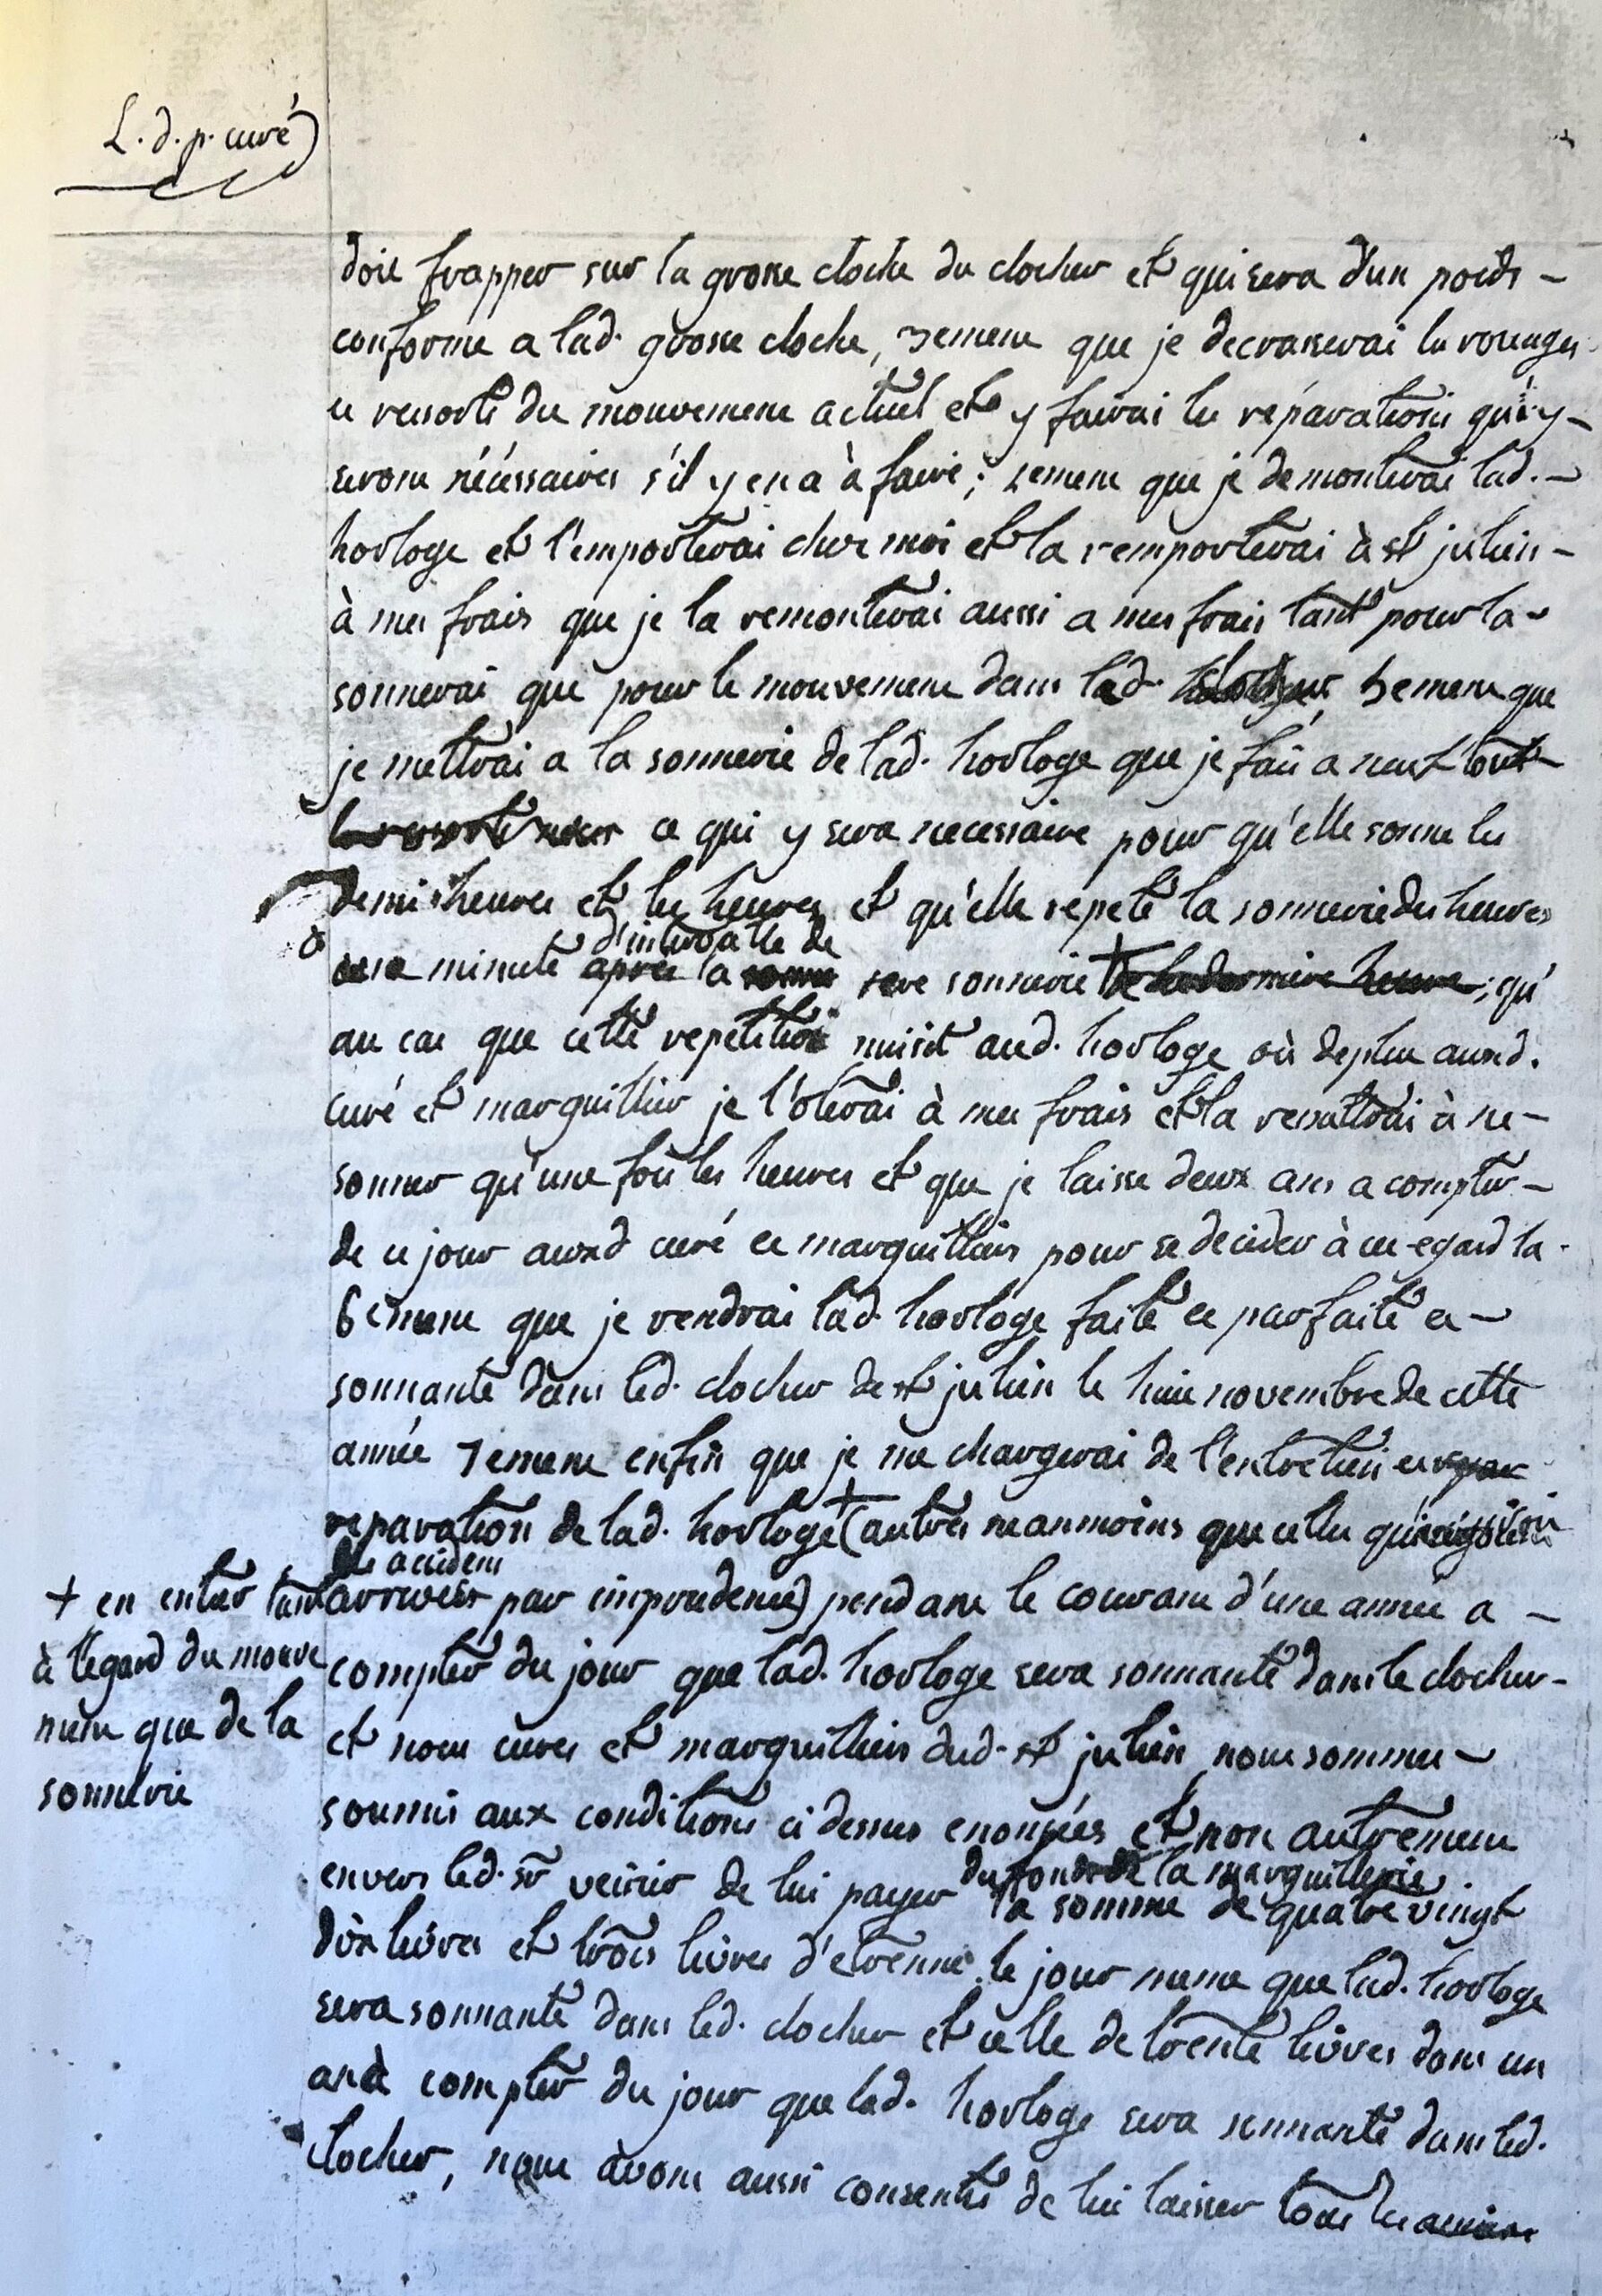 L. d. p. curé
doit frapper sur la grosse cloche du clocher et qui sera d'un poids -
conforme a lad. grosse cloche, 3ement que je decrasserai les rouages
et ressorts du mouvement actuel et y fairai les réparations qui y -
seront nécéssaires s'il y en a à faire; 4ement que je demonterai lad. -
horloge et l'emporterai chez moi et la remporterai à st julien -
à mes frais que je la remonterai aussi a mes frais tant pour la -
sonnerai que pour le mouvement dans led. clocher, 5ement que
je mettrai a la sonnerie de lad. horloge que je fais a neuf tout
ce qui y sera necessaire pour qu'elle sonne les
demis heures et les heures et qu'elle repete la sonnerie des heures
à une minute d'intervalle de la 1ere sonnerie ; qu'
au cas que cette repetition nuisit aud. horloge où deplut auxd.
curé et marguillier je l'ôterai à mes frais et la remettrai à ne -
sonner qu'une fois les heures et que je laisse deux ans a compter -
de ce jour auxd curé et marguilliers pour se decider à cet egard la -
6ement que je rendrai lad. horloge faite et parfaite et -
sonnante dans led. clocher de st julien le huit novembre de cette
année 7ement enfin que je me chargerai de l'entretien et
reparation de lad. horloge + (autres neanmoins que celles qui
accidens
arrivées par imprudence) pendant le courant d'une année a -
+ en entier tant
à l'égard du mouve
ment que de la
sonnerie
compter du jour que lad. horloge sera sonnante dans le clocher -
et nous curés et marguilliers dud. st julien nous sommes -
soumis aux conditions ci dessus enoncées et non autrement
envers led. sr de lui payer du fonds de la marguillerie la somme de quatre vingt
dix livres et trois livres d'étrenne le jour meme que lad. horloge
sera sonnante dans led. clocher et celle de trente livres dans un
an à compter du jour que lad. horloge sera sonnante dans led.
clocher, nous avons aussi consentis de lui laisser tous les